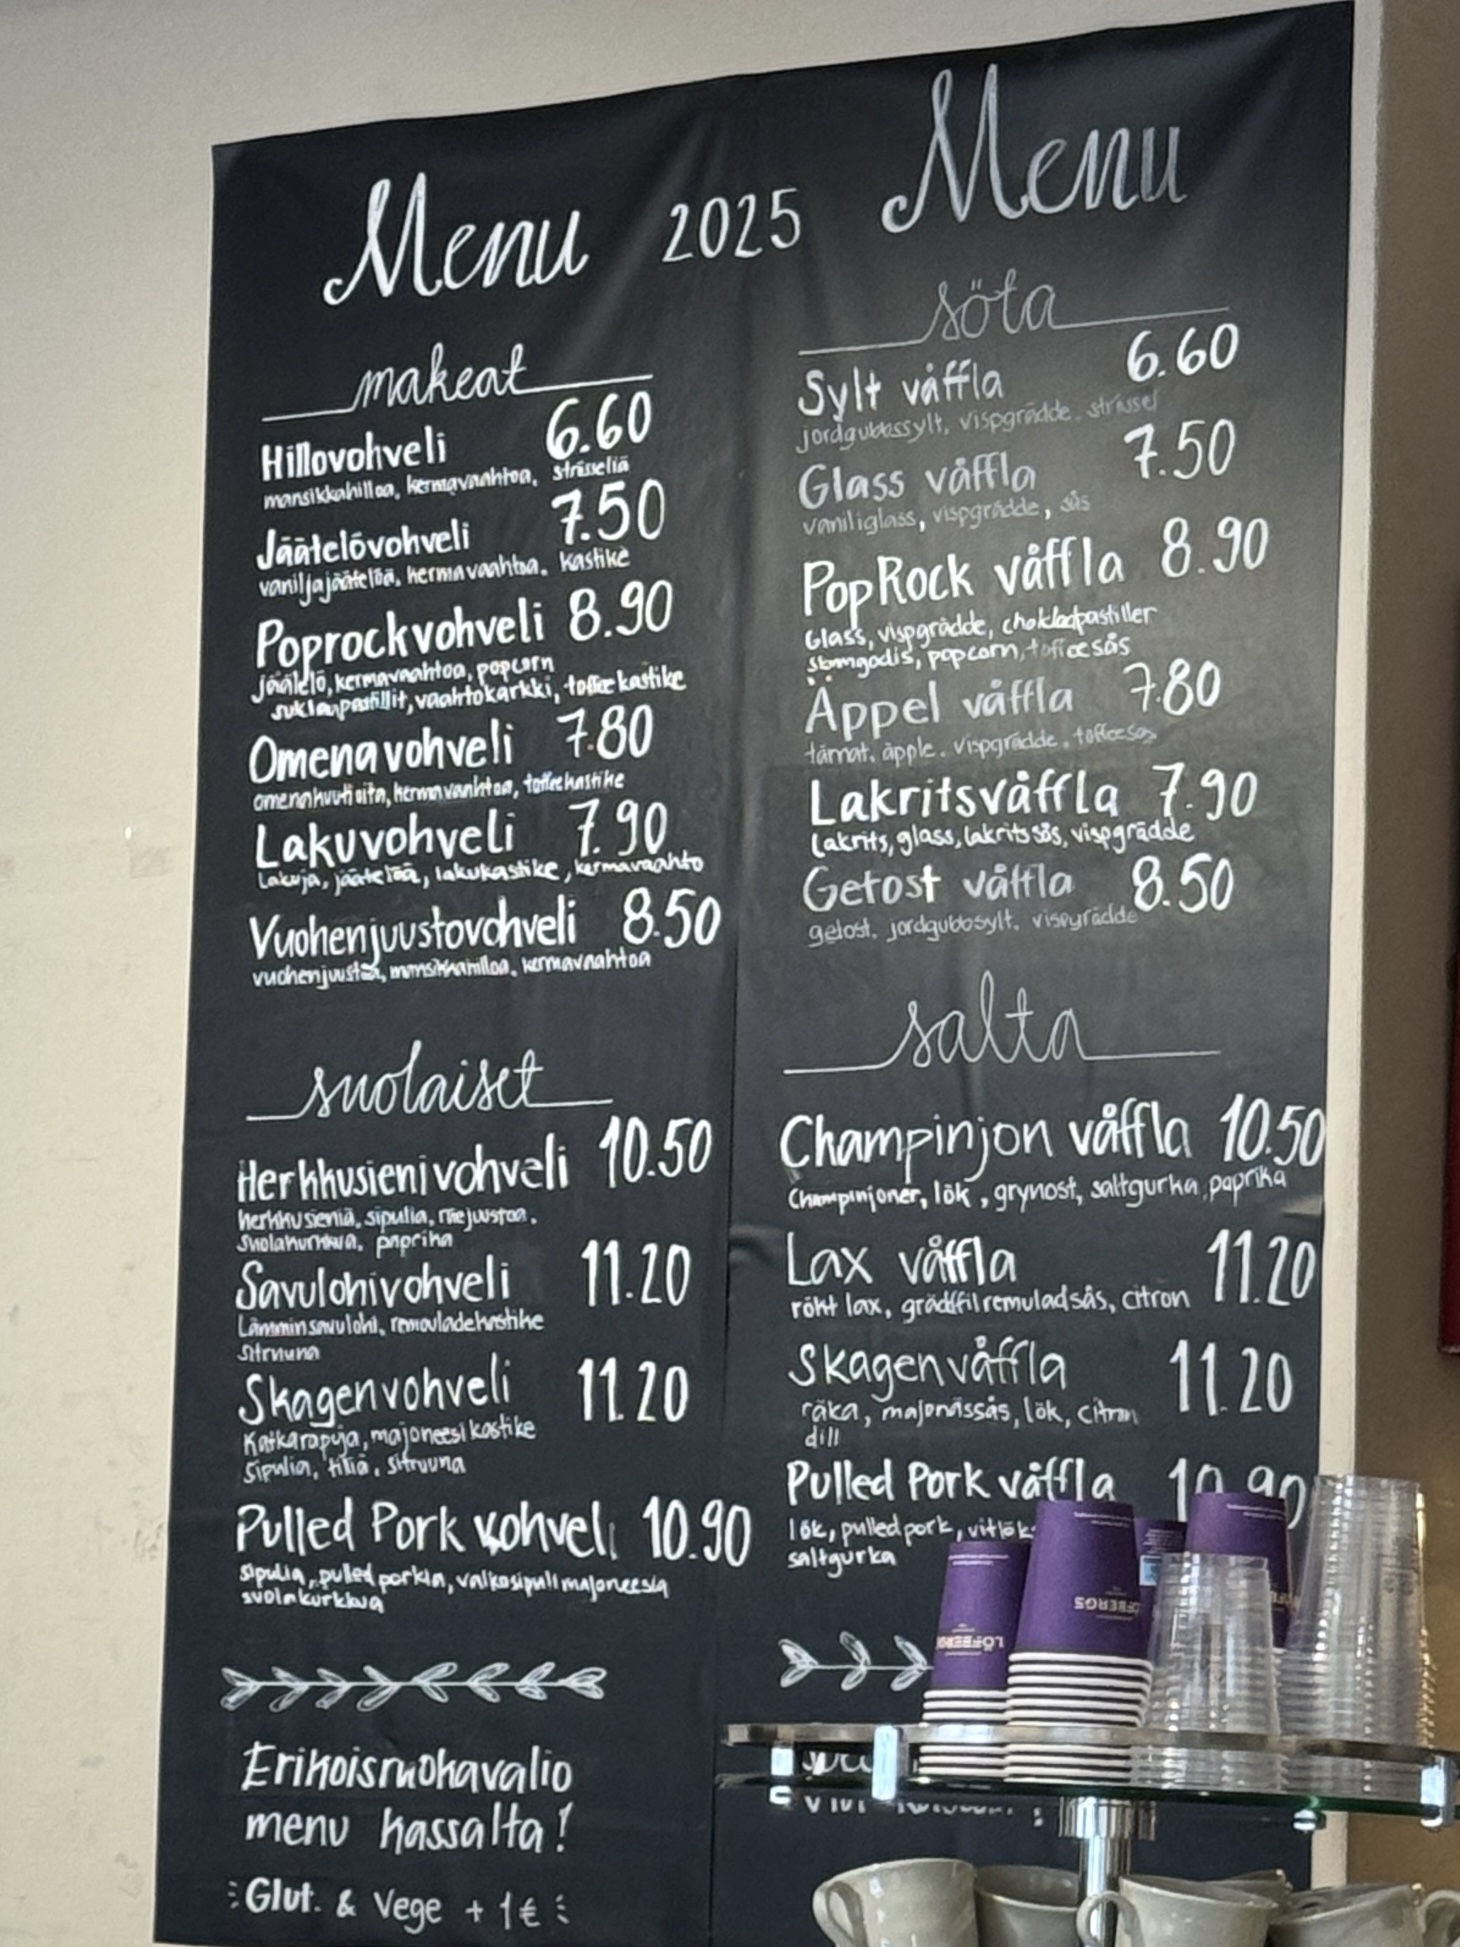 Menu 2025 Menu
makeat
Hillovohveli 6.60
mansikkahilloa, kermavaahtoa, strösseliä
Jäätelövohveli 7.50
vaniljajäätelöä, kermavaahtoa, kastike
Poprockvohveli 8.90
jäätelö, kermavaahtoa, popcorn
suklaapastillit, vaahtokarkki, toffeekastike
Omenavohveli 7.80
omenahuutioita, kermavaahtoa, toffeekastike
Lakuvohveli 7.90
Lakuja, jäätelöä, lakukastike, kermavaahto
Vuohenjuustovohveli 8.50
vuohenjuustoa, mansikkahilloa, kermavaahtoa
suolaiset
Herkkusienivohveli 10.50
herkkusieniä, sipulia, raejuustoa,
suolakurkkua, paprika
Savulohivohveli 11.20
Lämminsavulohi, remouladekastike
sitruuna
Skagenvohveli 11.20
Katkarapuja, majoneesikastike
Sipulia, tilliä, sitruuna
Pulled Pork vohveli 10.90
sipulia, pulled porkia, valkosipulimajoneesia
suolakurkkua
Erikoisruokavalio
menu kassalta!
Glut. & Vege + 1€
söta
Sylt våffla 6.60
jordgubbssylt, vispgrädde, strössel
Glass våffla 7.50
vaniliglass, vispgrädde, sås
PopRock våffla 8.90
Glass, vispgrädde, chokladpastiller
skumgodis, popcorn, toffeesås
Äppel våffla 7.80
tärnat, äpple, vispgrädde, toffeesås
Lakritsvåffla 7.90
Lakrits, glass, lakritssås, vispgrädde
Getost våffla 8.50
getost, jordgubbsylt, vispgrädde
salta
Champinjon våffla 10.50
Champinjoner, lök, grynost, saltgurka, paprika
Lax våffla 11.20
rökt lax, gräddfilremuladsås, citron
Skagenvåffla 11.20
räka, majonässås, lök, citron
dill
Pulled Pork våffla 10.90
lök, pulled pork, vitlök
saltgurka
LÖFBERGS
LÖFBERGS